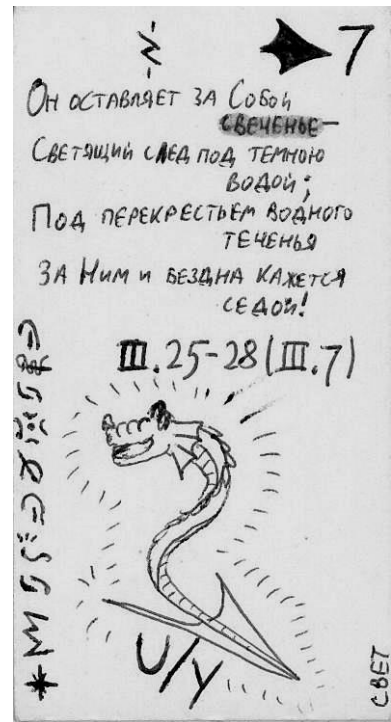 7
Он оставляет за Собой
свеченье—
Светящий след под темною
водой;
Под перекрестьем водного
теченья
За Ним и бездна кажется
седой!
III.25-28(III.7)
U/Y
СВЕТ